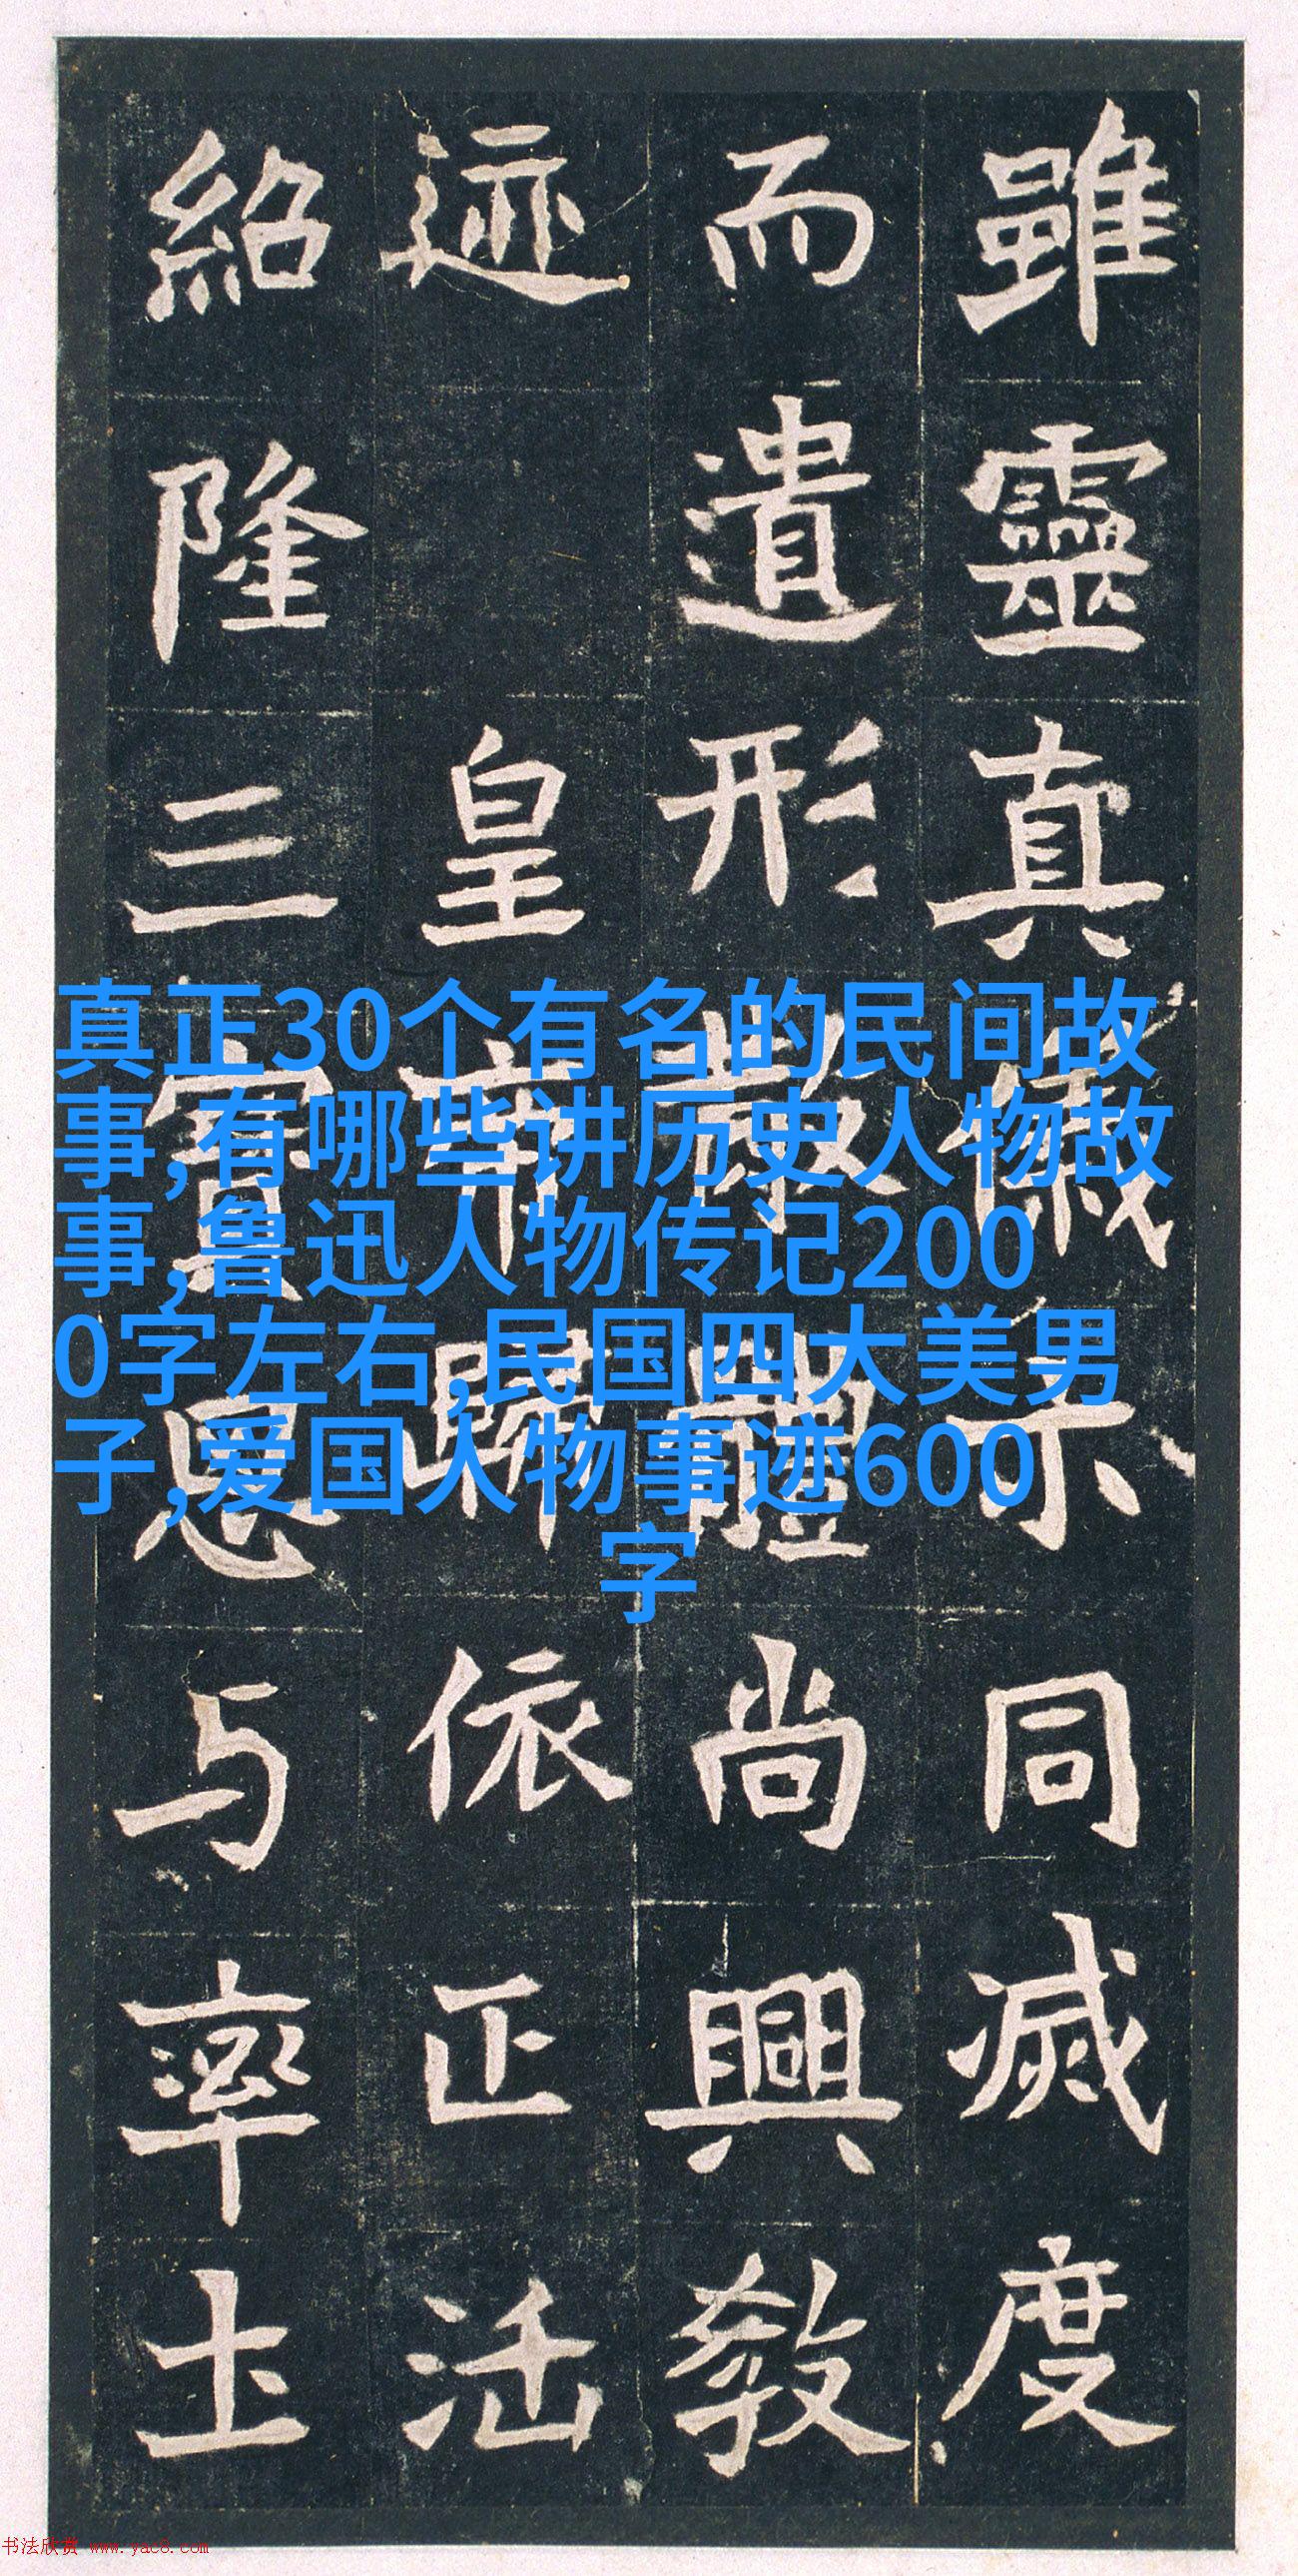 雖靈真儀示同滅度
而遺形散體尚興教
迹 皇帝歸依正法
紹隆三寶思与率土
真正30个有名的民间故
事,有哪些讲历史人物故
事,鲁迅人物传记200
0字左右,民国四大美男
子,爱国人物事迹600
字
书法欣赏 www.yac8.com